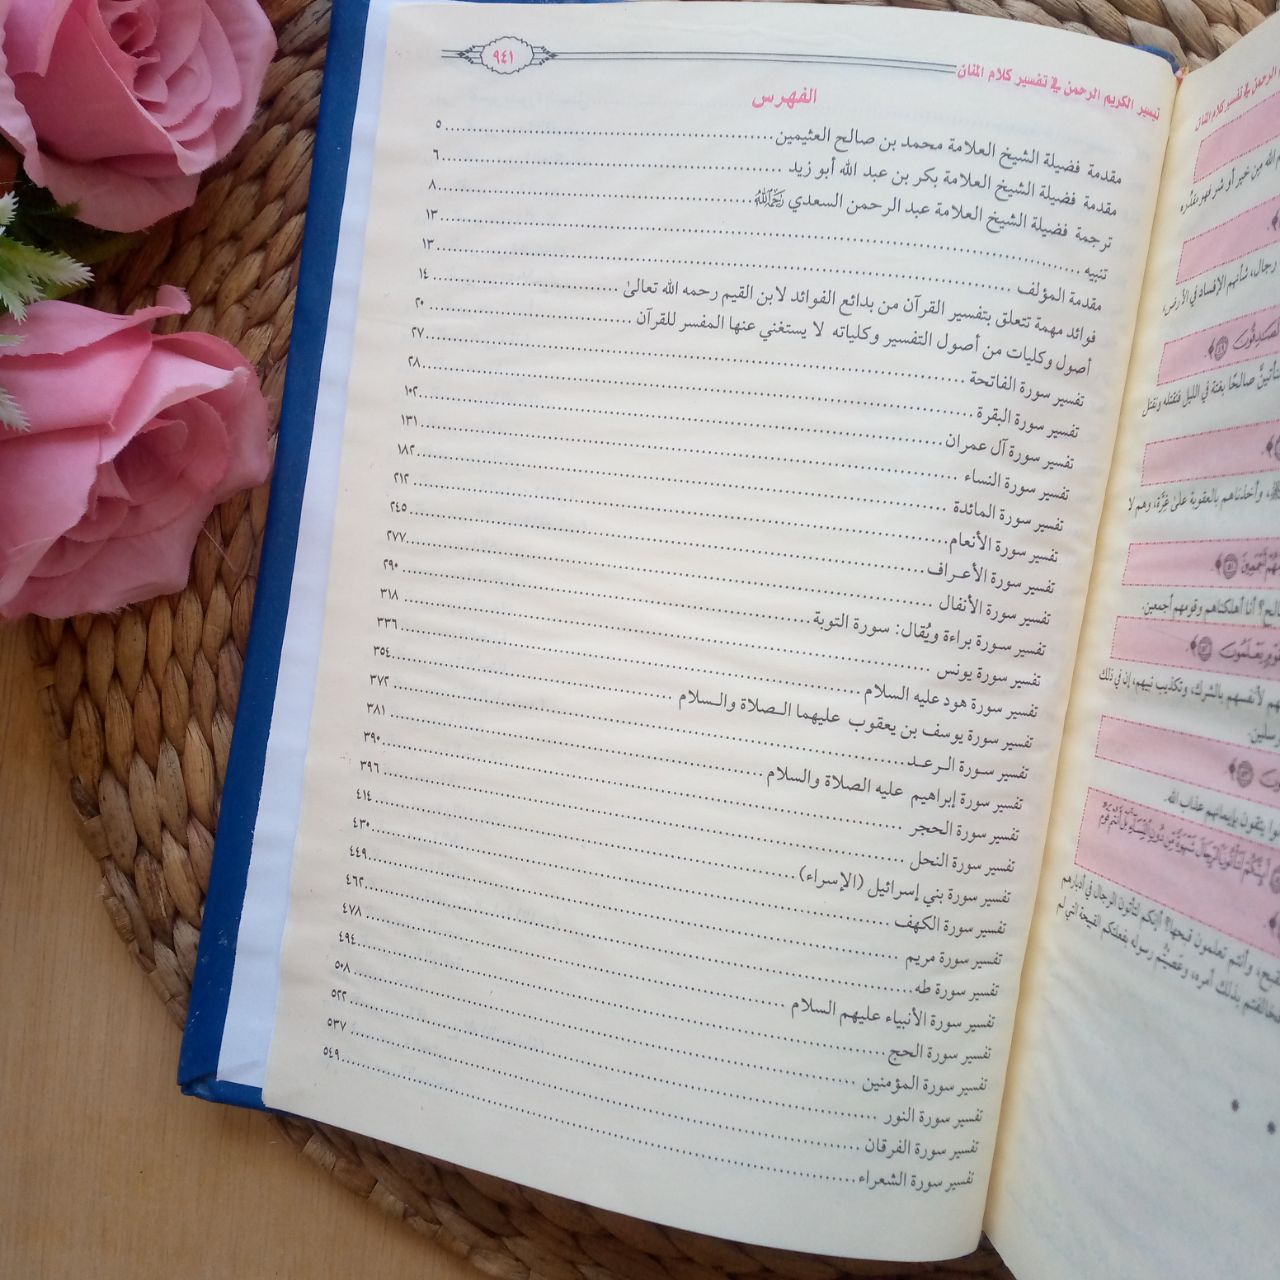 تيسير الكريم الرحمن في تفسير كلام المنان
٩٤١
الفهرس
مقدمة فضيلة الشيخ العلامة محمد بن صالح العثيمين ٥
مقدمة فضيلة الشيخ العلامة بكر بن عبد الله أبو زيد ٦
ترجمة فضيلة الشيخ العلامة عبد الرحمن السعدي رحمه الله ٨
تنبيه ١٣
مقدمة المؤلف ١٣
فوائد مهمة تتعلق بتفسير القرآن من بدائع الفوائد لابن القيم رحمه الله تعالىٰ ١٤
أصول وكليات من أصول التفسير وكلياته لا يستغني عنها المفسر للقرآن ٢٠
تفسير سورة الفاتحة ٢٧
تفسير سورة البقرة ٢٨
تفسير سورة آل عمران ١٠٢
تفسير سورة النساء ١٣١
تفسير سورة المائدة ١٨٢
تفسير سورة الأنعام ٢١٢
تفسير سورة الأعراف ٢٤٥
تفسير سورة الأنفال ٢٧٧
تفسير سورة براءة ويُقال: سورة التوبة ٢٩٠
تفسير سورة يونس ٣١٨
تفسير سورة هود عليه السلام ٣٣٦
تفسير سورة يوسف بن يعقوب عليهما الصلاة والسلام ٣٥٤
تفسير سورة الرعد ٣٧٢
تفسير سورة إبراهيم عليه الصلاة والسلام ٣٨١
تفسير سورة الحجر ٣٩٠
تفسير سورة النحل ٣٩٦
تفسير سورة بني إسرائيل (الإسراء) ٤١٤
تفسير سورة الكهف ٤٣٠
تفسير سورة مريم ٤٤٩
تفسير سورة طه ٤٦٢
تفسير سورة الأنبياء عليهم السلام ٤٧٨
تفسير سورة الحج ٤٩٤
تفسير سورة المؤمنين ٥٠٨
تفسير سورة النور ٥٢٢
تفسير سورة الفرقان ٥٣٧
تفسير سورة الشعراء ٥٤٩